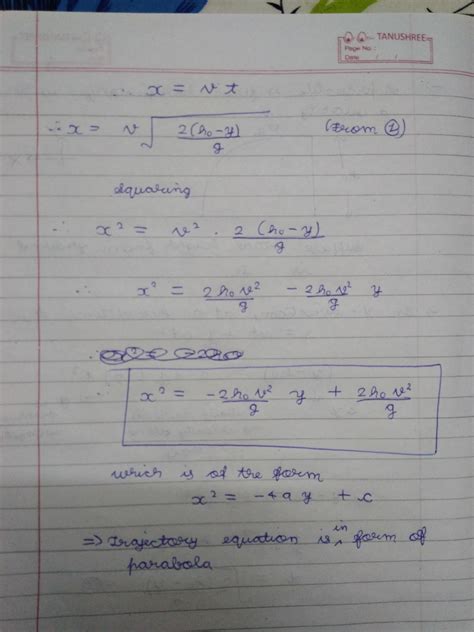 TANUSHREE
Page No :
Date : / /
∴ x = v t
∴ x = v √(2(h₀-y)/g) (From ①)
squaring
∴ x² = v² . 2 (h₀-y)/g
∴ x² = 2h₀v²/g - 2h₀v²/g y
x² = -2h₀v²/g y + 2h₀v²/g
which is of the form
x² = -4ay + c
⇒ Trajectory equation is in form of
parabola